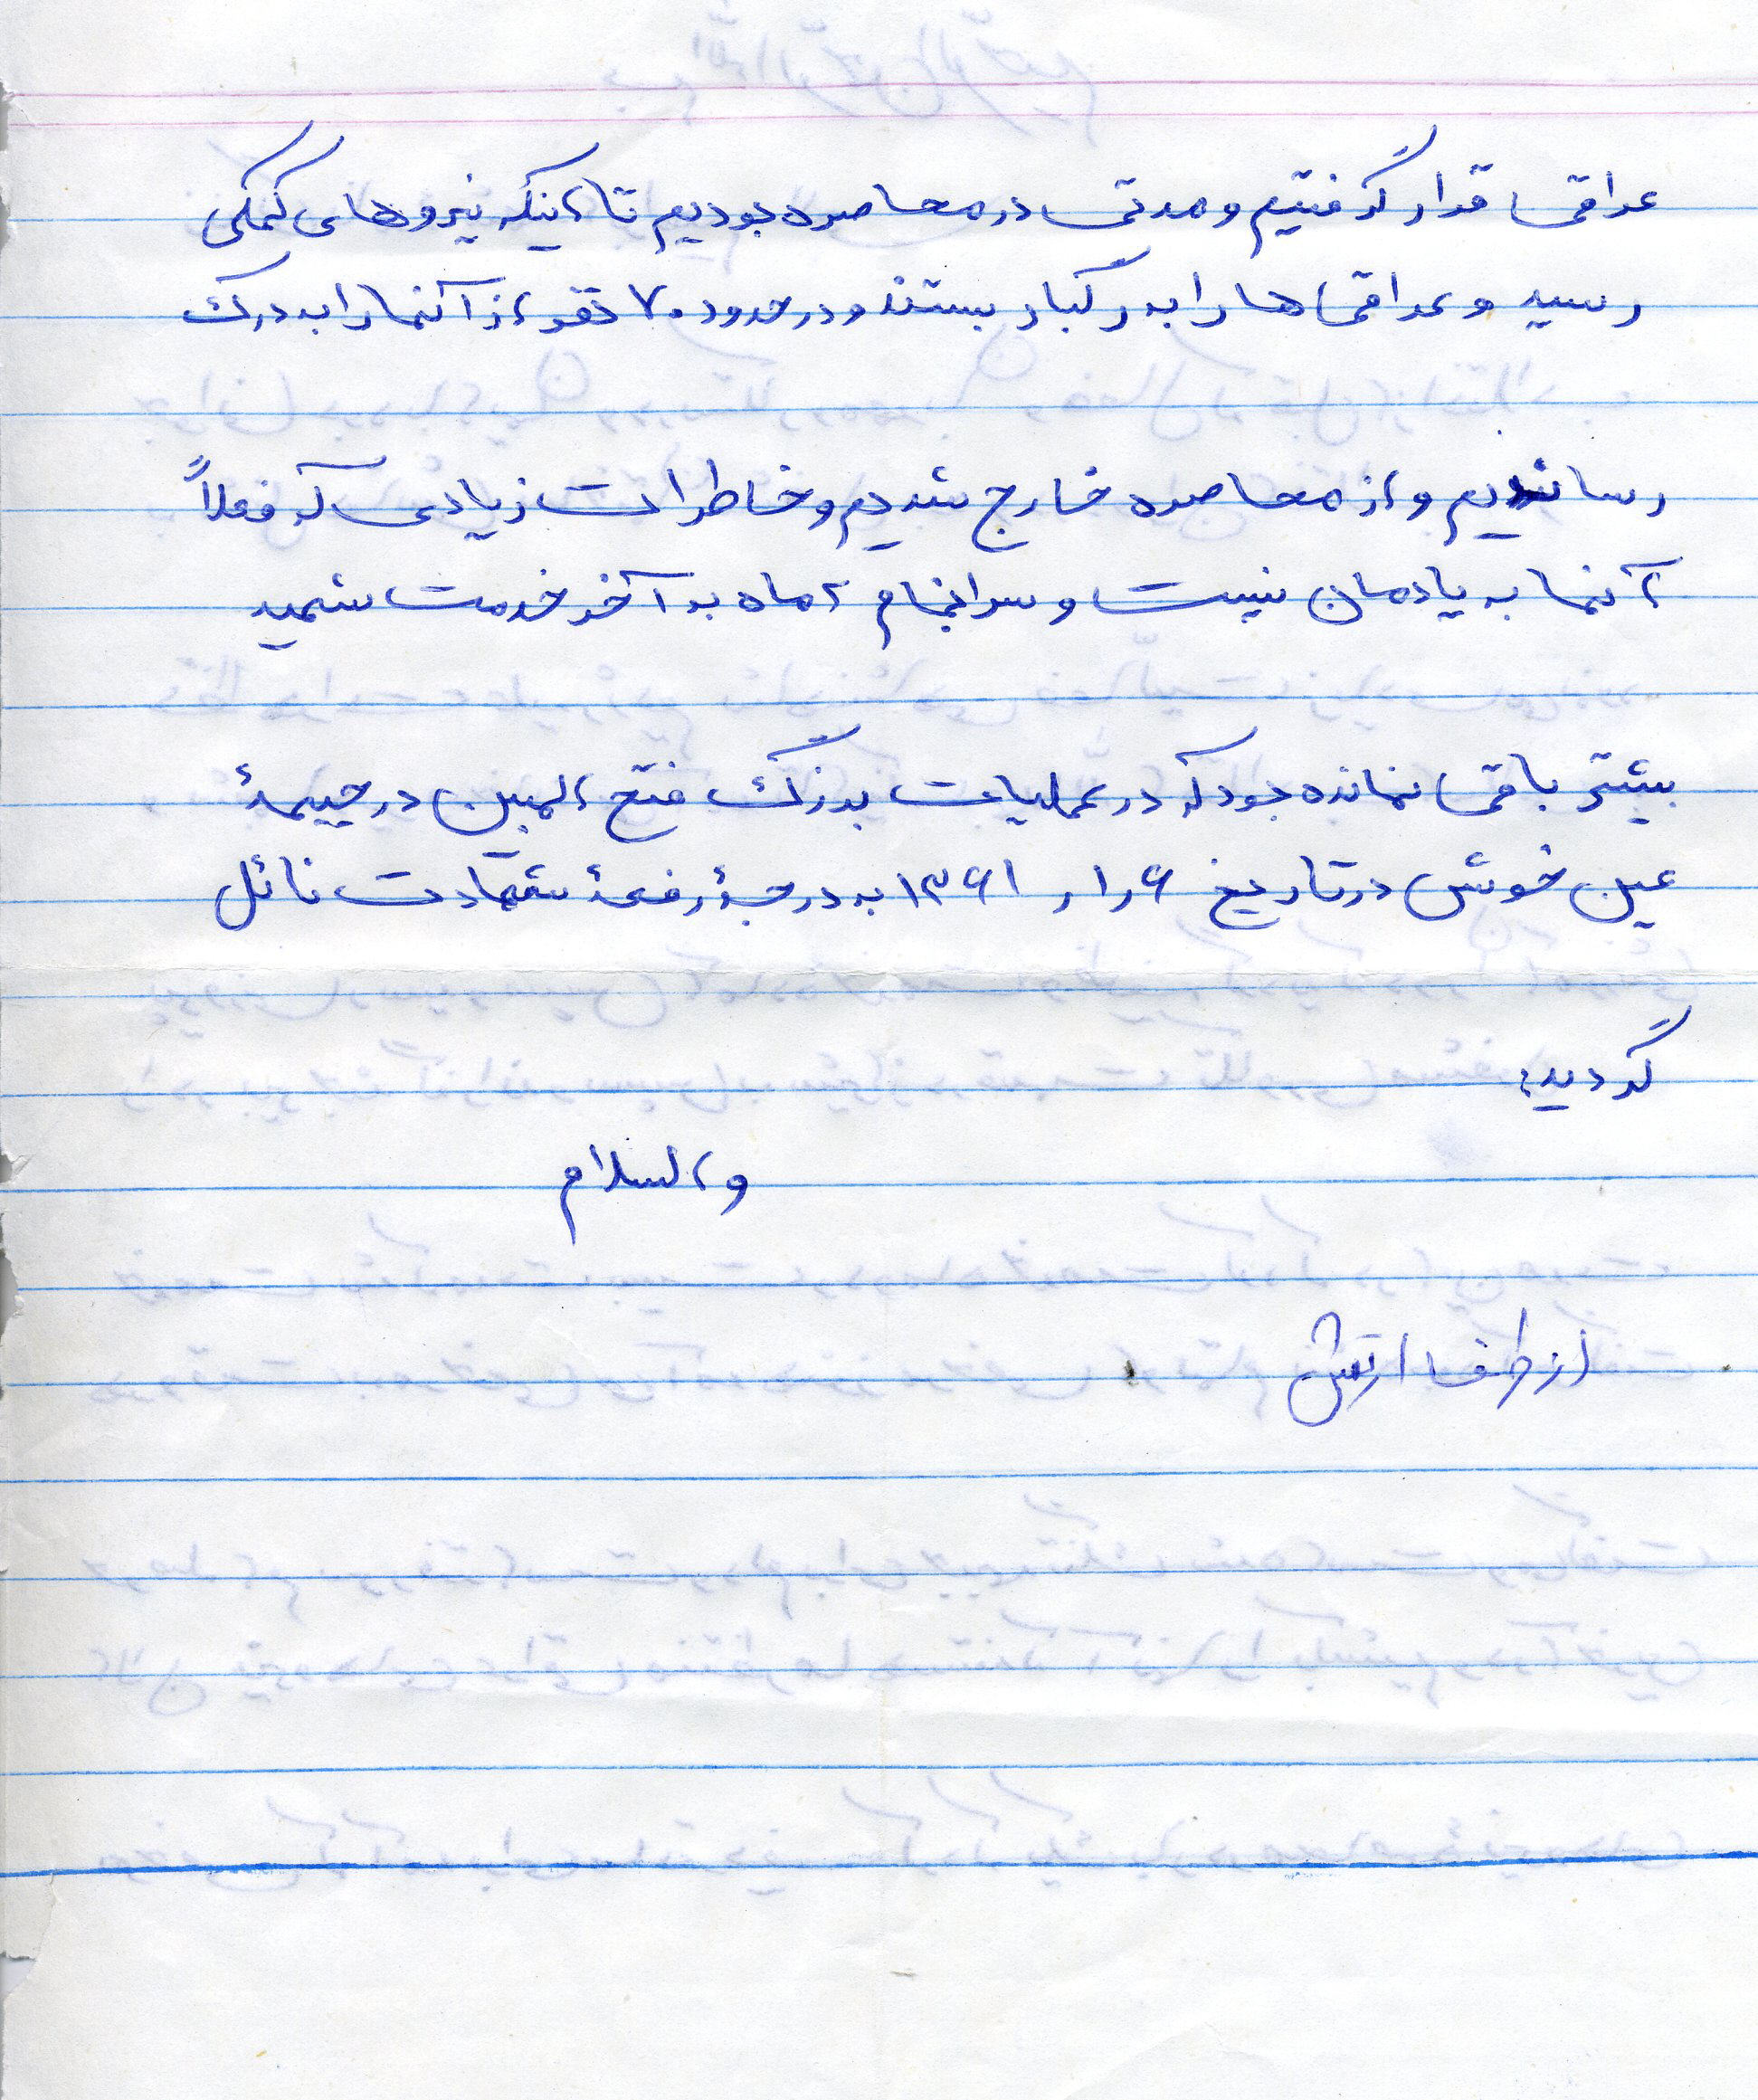 عراقی قرار گرفتیم و مدتی در محاصره بودیم تا اینکه نیروهای کمکی
رسید و عراقی ها را به رگبار بستند و در حدود ۷۰ نفر از آنها را به درک
رساندیم و از محاصره خارج شدیم و خاطرات زیادی که فعلاً
آنها به یادمان نیست و سرانجام ۲ ماه به آخر خدمت شهید
بیشتر باقی نمانده بود که در عملیات بزرگ فتح المبین در جبههٔ
عین خوش در تاریخ ۶ ر ۱ ر ۱۳۶۱ به درجهٔ رفیعهٔ شهادت نائل
گردید.
والسلام
از طرف ارتش